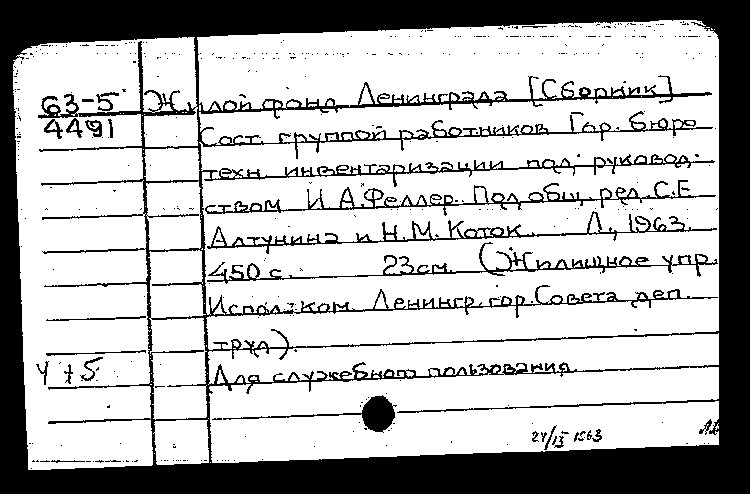 63-5 Жилой фонд Ленинграда [Сборник]
4491 Сост. группой работников Гор. бюро
техн. инвентаризации под руковод-
ством И.А.Феллер. Под общ. ред. С.Е.
Алтунина и Н.М. Коток. Л., 1963.
450 с. 23см. (Жилищное упр.
Исполком. Ленингр. гор. Совета деп.
труд).
4 + 5 Для служебного пользования
24/IX 1963